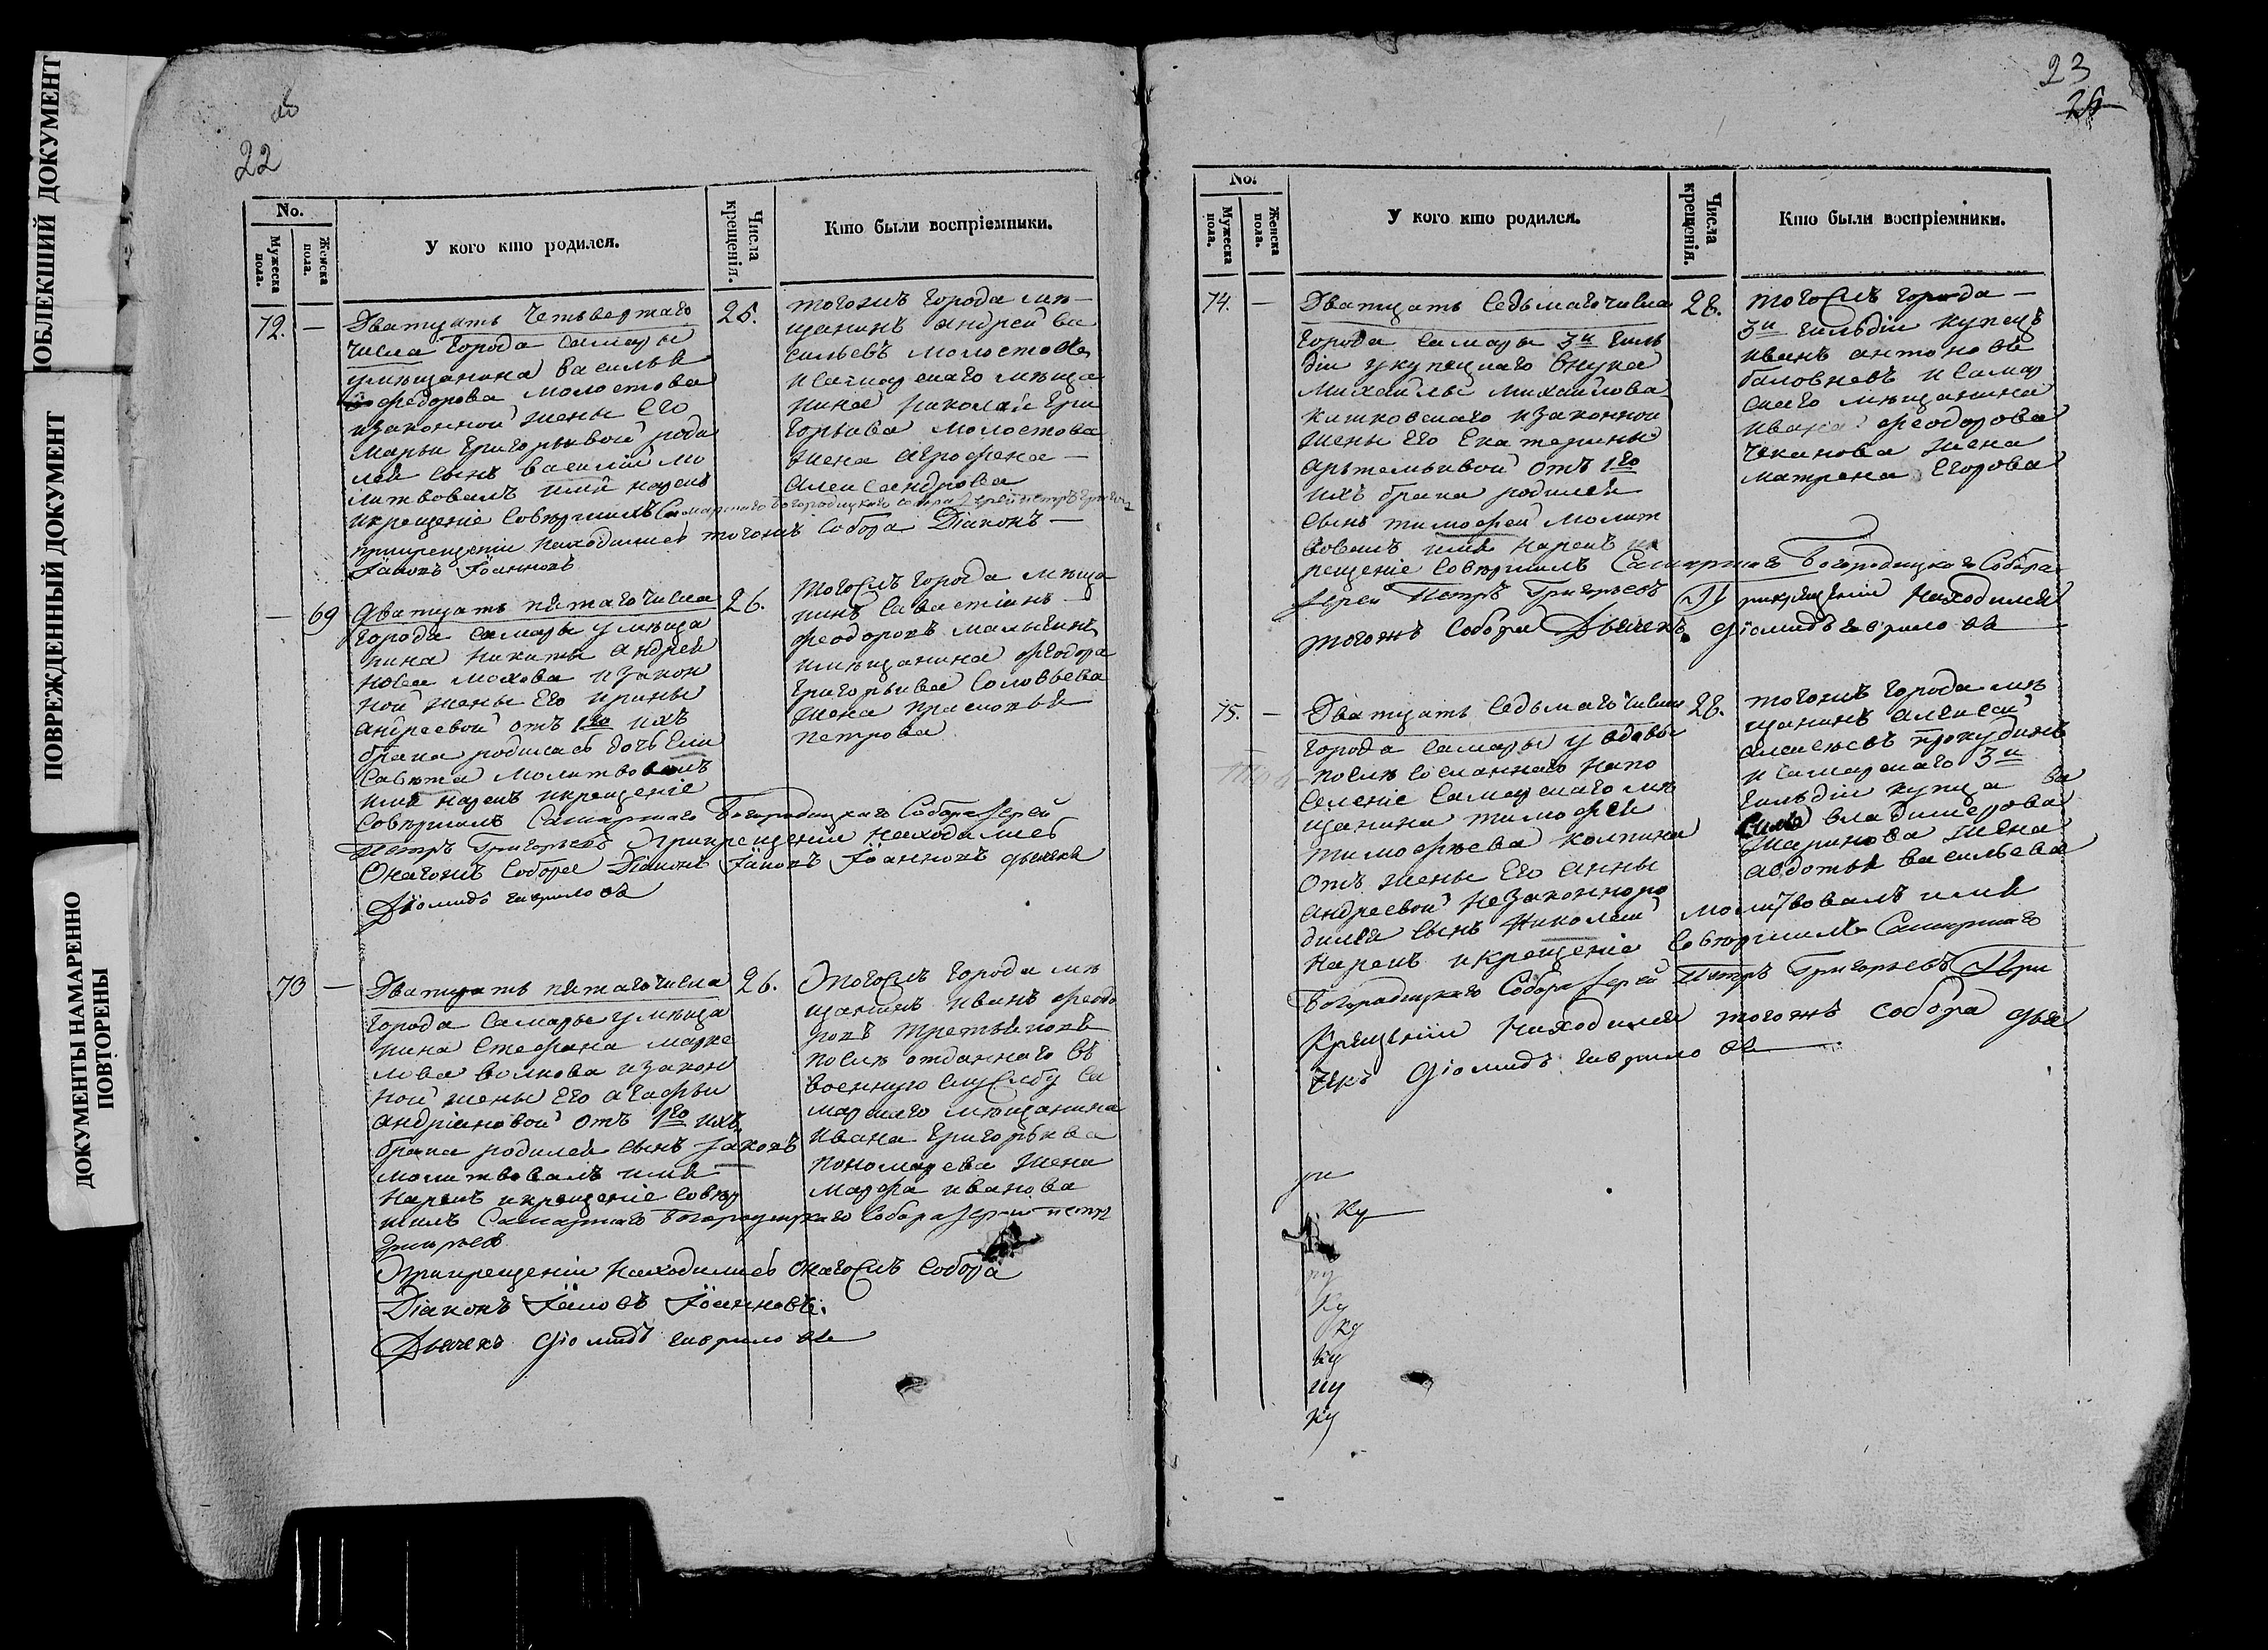 ПОБЛЕКШИЙ ДОКУМЕНТ
ПОВРЕЖДЕННЫЙ ДОКУМЕНТ
ДОКУМЕНТЫ НАМАРЕННО
ПОВТОРЕНЫ
22
No.
Мужеска пола.
Женска пола.
У кого кто родился.
Числа крещенія.
Кто были воспріемники.
72. —
Дватцать четвертаго
числа города самары
умѣщанина василья
федорова молостова
изаконной жены его
марьи григорьевой роди
лся сынъ василий мо
литвовалъ имя нарекъ
икрещеніе совѣршилъ Самарскаго богородицкаго собора Іерей петръ григорьевъ
прикрещеніи находились тогожъ собора Діаконъ —
Іаковъ Іоанновъ
25.
тогожъ города мѣ—
щанинъ андрей ва
сильевъ молостовъ
исамарскаго мѣща
нина николая гри
горьева молостова
жена агрофена —
александрова
— 69
Дватцать пятаго числа
города самары умѣща
нина никиты андрея
нова мохова изакон
ной жены его ирины
андреевой отъ 1го ихъ
брака родилась дочь ели
савета молитвовалъ
имя нарекъ икрещеніе
совѣршилъ Самарскаго Богородицкаго Собора Іерей
Петръ Григорьевъ прикрещеніи находились
Онагожъ Собора Діаконъ Іаковъ Іоанновъ дьячекъ
Діомидъ гаврилов
26.
тогожъ города мѣща
нинъ савастіянъ
феодоровъ малыгинъ
имѣщанина феодора
григорьева соловьева
жена прасковья
петрова
73 —
Дватцать пятаго числа
города самары умѣща
нина стефана марке
лова волкова изакон
ной жены его агафьи
андріановой отъ 1го ихъ
брака родился сынъ Іаковъ
молитвовалъ имя
нарекъ икрещеніе совѣр
шилъ Самарскаго Богородицкаго Собора Іерей петръ
григорьевъ
прикрещеніи находились онагожъ собора
Діаконъ Іаковъ Іоанновъ.
Дьячекъ Діомидъ гаврилов
26.
тогожъ города мѣ
щанинъ иванъ феодо
ровъ третьяковъ
послѣ отданнаго въ
военную службу са
марскаго мѣщанина
ивана григорьева
пономарева жена
марфа иванова
23
No.
Мужеска пола.
Женска пола.
У кого кто родился.
Числа крещенія.
Кто были воспріемники.
74. —
Дватцать седьмаго числа
города самары 3й гиль
діи укупецкаго внука
михайлы михайлова
изаконной
жены его екатерины
артемьевой отъ 1го
ихъ брака родился
сынъ тимофей молит
вовалъ имя нарекъ ик
рещеніе совѣршилъ Самарскаго Богородицкаго Собора
Іерей Петръ Григорьевъ прикрещеніи находился
тогожъ собора Дьячекъ Діомидъ гаврилов
28.
тогожъ города —
3й гильдіи купецъ
иванъ антоновъ
баловневъ и самар
скаго мѣщанина
ивана феодорова
чеканова жена
матрена егорова
75. —
Дватцать седьмаго числа
города самары у вдовы
послѣ сосланнаго напо
селеніе самарскаго мѣ
щанина тимофея
тимофѣева
отъ жены его анны
андреевой незаконноро
дился сынъ николай молитвовалъ имя
нарекъ икрещеніе совѣршилъ Самарскаго
Богородицкаго Собора Іерей Петръ Григорьевъ При
крещеніи находился тогожъ собора дья
чекъ Діомидъ гаврилов
28.
тогожъ города мѣ
щанинъ алексей
алексеевъ прокудинъ
и самарскаго 3й
гильдіи купца ва
силья владимерова
жаринова жена
авдотья васильева
ри
ку
ку
ку
ку
ку
ку